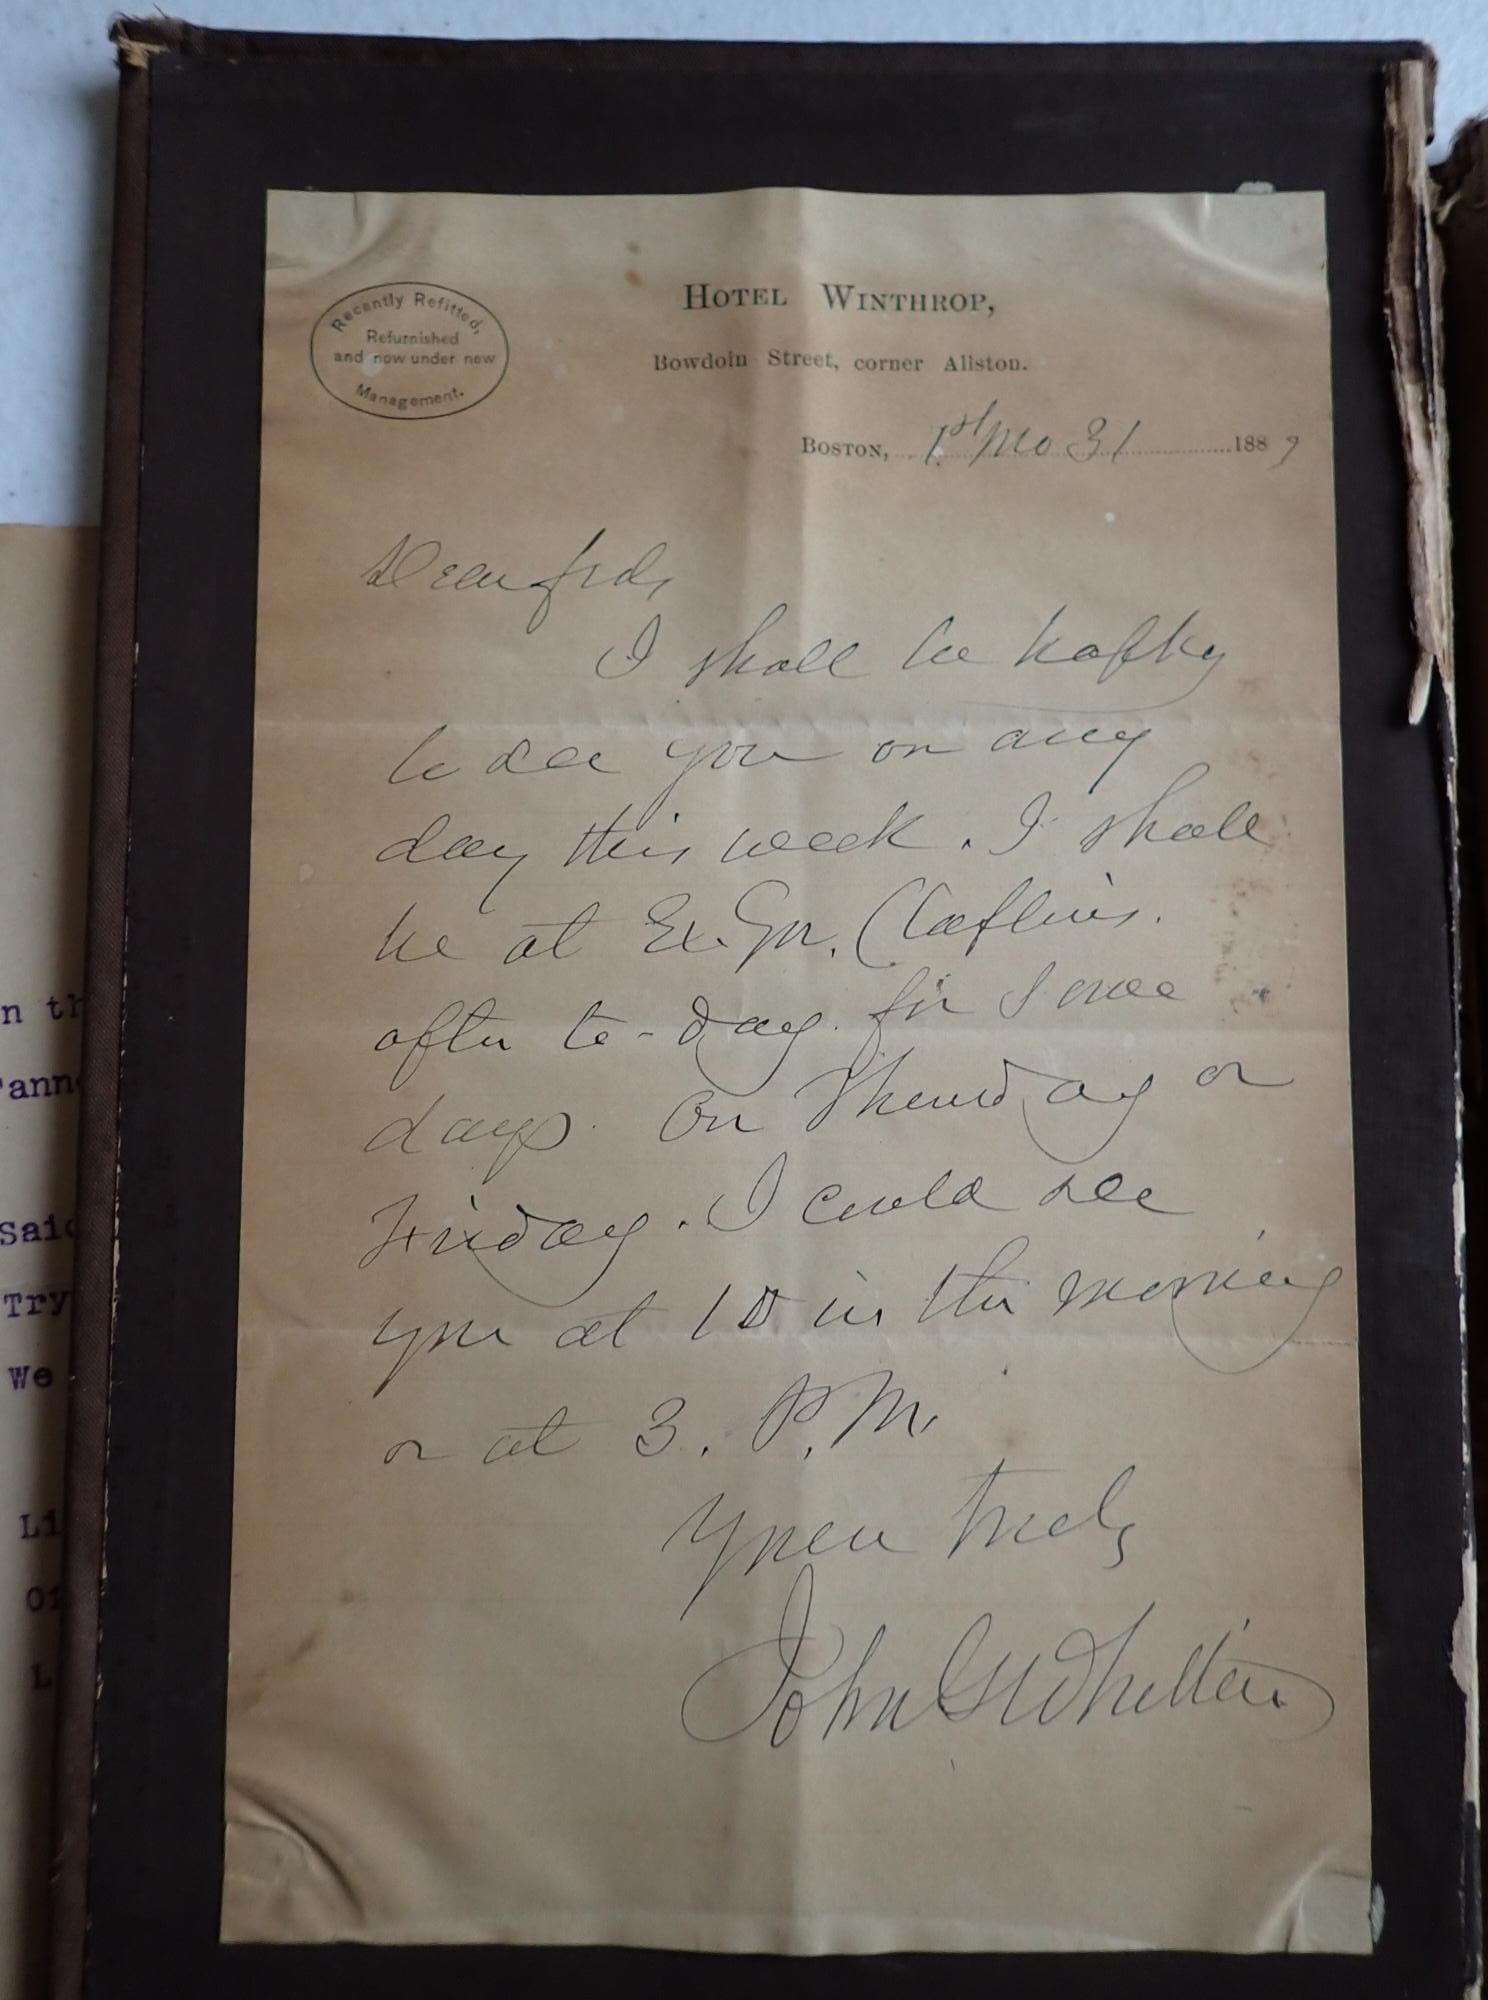 Recently Refitted,
Refurnished
and now under new
Management.
HOTEL WINTHROP,
Bowdoin Street, corner Allston.
BOSTON, 1st Mo 31 1887
Dear frd,
I shall be happy
to see you on any
day this week. I shall
be at Ex. Gov. Claflin's.
after to-day for some
days. On Thursday or
Friday. I could see
you at 10 in the morning
or at 3. P.M.
Yours truly
John G Whittier
n th
Said
Try
We
Li
L